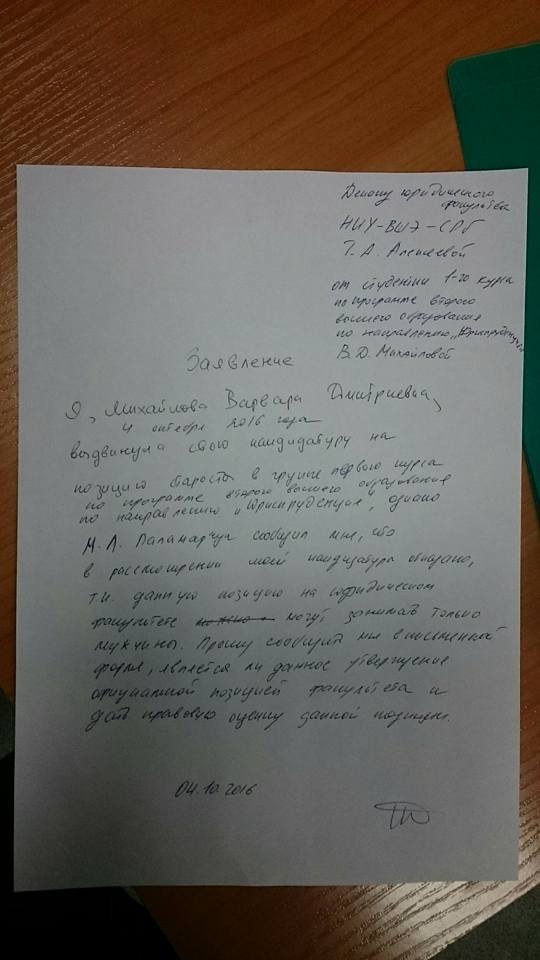 Декану юридического
факультета
НИУ-ВШЭ-СПб
Т. А. Алексеевой
от студентки 1-го курса
по программе второго
высшего образования
по направлению "Юриспруденция"
В. Д. Михайловой
Заявление
Я, Михайлова Варвара Дмитриевна,
4 октября 2016 года
выдвинула свою кандидатуру на
позицию старосты в группе первого курса
по программе второго высшего образования
по направлению "Юриспруденция", однако
М. Л. Паламарчук сообщил мне, что
в рассмотрении моей кандидатуры отказано,
т.к. данную позицию на юридическом
факультете можно могут занимать только
мужчины. Прошу сообщить мне в письменной
форме, является ли данное утверждение
официальной позицией факультета и
дать правовую оценку данной позиции.
04.10.2016